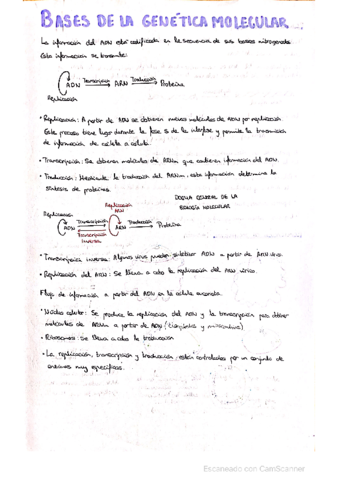 BASES DE LA GENÉTICA MOLECULAR
La información del ADN está codificada en la secuencia de sus bases nitrogenadas
Esta información se transmite:
Transcripción Traducción
ADN ARN Proteína
Replicación
• Replicación: A partir de ADN se obtienen nuevas moléculas de ADN por replicación.
Este proceso tiene lugar durante la fase S de la interfase y permite la transmisión
de información de célula a célula.
• Transcripción: Se obtienen moléculas de ARNm que contienen información del ADN.
• Traducción: Mediante la traducción del ARNm, esta información determina la
síntesis de proteínas.
DOGMA CENTRAL DE LA
BIOLOGÍA MOLECULAR
Replicación
ARN
Replicación Transcripción Traducción
ADN ARN Proteína
Transcripción
inversa
• Transcripción inversa: Algunos virus pueden sintetizar ADN a partir de ARN vírico.
• Replicación del ARN: Se lleva a cabo la replicación del ARN vírico.
Flujo de información a partir del ADN en la célula eucariota
• Núcleo celular: Se produce la replicación del ADN y la transcripción para obtener
moléculas de ARNm a partir de ADN
• Ribosomas: Se lleva a cabo la traducción
• La replicación, transcripción y traducción están controlados por un conjunto de
enzimas muy específicas.
Escaneado con CamScanner